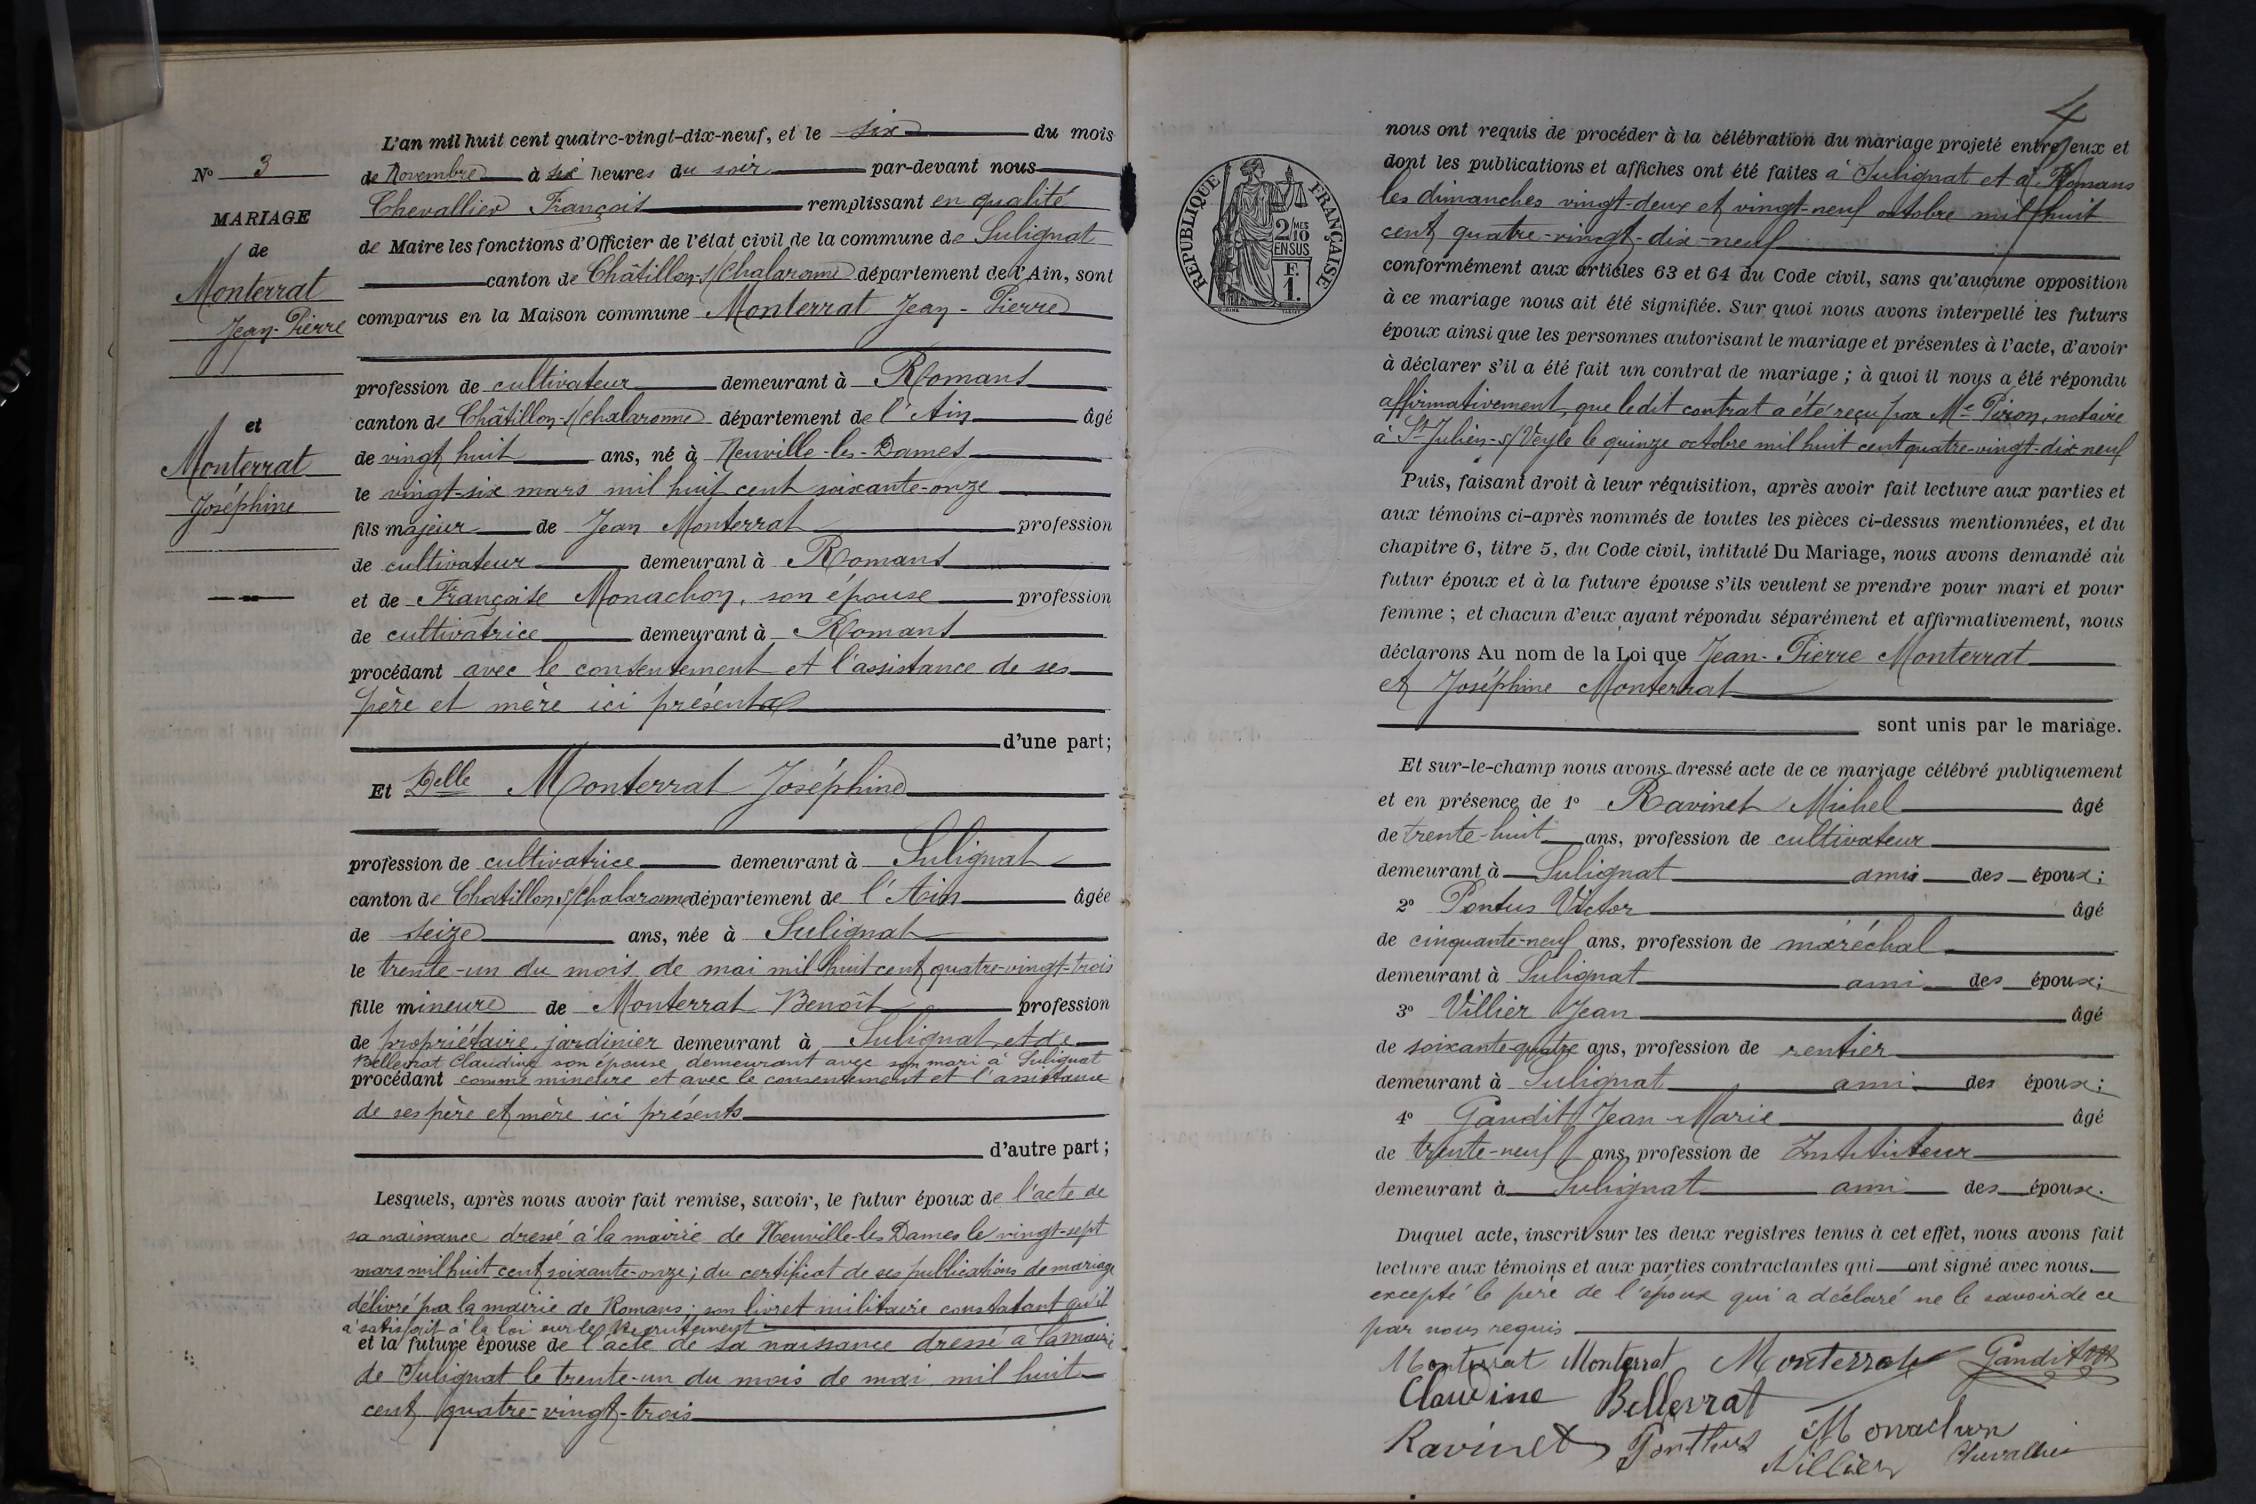 N° 3
MARIAGE
de
Monterrat
Jean-Pierre
et
Monterrat
Joséphine
L'an mil huit cent quatre-vingt-dix-neuf, et le six du mois
de Novembre à six heures du soir par-devant nous
Chevallier François remplissant en qualité
de Maire les fonctions d'Officier de l'état civil de la commune de Sulignat
canton de Châtillon-s/Chalaronne département de l'Ain, sont
comparus en la Maison commune Monterrat Jean-Pierre
profession de cultivateur demeurant à Romans
canton de Châtillon-s/Chalaronne département de l'Ain âgé
de vingt huit ans, né à Neuville-les-Dames
le vingt-six mars mil huit cent soixante-onze
fils majeur de Jean Monterrat profession
de cultivateur demeurant à Romans
et de Françoise Monachon, son épouse profession
de cultivatrice demeurant à Romans
procédant avec le consentement et l'assistance de ses
père et mère ici présents
d'une part;
Et Delle Monterrat Joséphine
profession de cultivatrice demeurant à Sulignat
canton de Chatillon s/Chalaronne département de l'Ain âgée
de seize ans, née à Sulignat
le trente-un du mois de mai mil huit cent quatre-vingt-trois
fille mineure de Monterrat Benoît profession
de propriétaire-jardinier demeurant à Sulignat et de
Bellevrat Claudine son épouse demeurant avec son mari à Sulignat
procédant comme mineure et avec le consentement et l'assistance
de ses père et mère ici présents
d'autre part;
Lesquels, après nous avoir fait remise, savoir, le futur époux de l'acte de
sa naissance dressé à la mairie de Neuville-les Dames le vingt-sept
mars mil huit cent soixante-onze; du certificat de ses publications de mariage
délivré par la mairie de Romans; son livret militaire constatant qu'il
a satisfait à la loi sur le recrutement
et la future épouse de l'acte de sa naissance dressé à la mairie
de Sulignat le trente-un du mois de mai mil huit
cent quatre-vingt-trois
4
RÉPUBLIQUE FRANÇAISE
2/MES
10
EN SUS
F.
1.
nous ont requis de procéder à la célébration du mariage projeté entre eux et
dont les publications et affiches ont été faites à Sulignat et à Romans
les dimanches vingt-deux et vingt-neuf octobre mil huit
cent quatre-vingt-dix-neuf
conformément aux articles 63 et 64 du Code civil, sans qu'aucune opposition
à ce mariage nous ait été signifiée. Sur quoi nous avons interpellé les futurs
époux ainsi que les personnes autorisant le mariage et présentes à l'acte, d'avoir
à déclarer s'il a été fait un contrat de mariage; à quoi il nous a été répondu
affirmativement, que ledit contrat a été reçu par Me Piron, notaire
à St Julien-s/Veyle le quinze octobre mil huit cent quatre-vingt-dix neuf
Puis, faisant droit à leur réquisition, après avoir fait lecture aux parties et
aux témoins ci-après nommés de toutes les pièces ci-dessus mentionnées, et du
chapitre 6, titre 5, du Code civil, intitulé Du Mariage, nous avons demandé au
futur époux et à la future épouse s'ils veulent se prendre pour mari et pour
femme; et chacun d'eux ayant répondu séparément et affirmativement, nous
déclarons Au nom de la Loi que Jean-Pierre Monterrat
et Joséphine Monterrat
sont unis par le mariage.
Et sur-le-champ nous avons dressé acte de ce mariage célébré publiquement
et en présence de 1° Ravinet Michel âgé
de trente-huit ans, profession de cultivateur
demeurant à Sulignat ami des époux;
2° Pontus Victor âgé
de cinquante-neuf ans, profession de maréchal
demeurant à Sulignat ami des époux;
3° Villier Jean âgé
de soixante-quatre ans, profession de rentier
demeurant à Sulignat ami des époux;
4° Gandit Jean-Marie âgé
de trente-neuf ans, profession de Instituteur
demeurant à Sulignat ami des époux.
Duquel acte, inscrit sur les deux registres tenus à cet effet, nous avons fait
lecture aux témoins et aux parties contractantes qui ont signé avec nous.
excepté le père de l'époux qui a déclaré ne le savoir de ce
par nous requis
Monterrat Monterrat Monterrat Gandit
Claudine Bellevrat
Ravinet Ponthus Monachon
Villier Chevallier